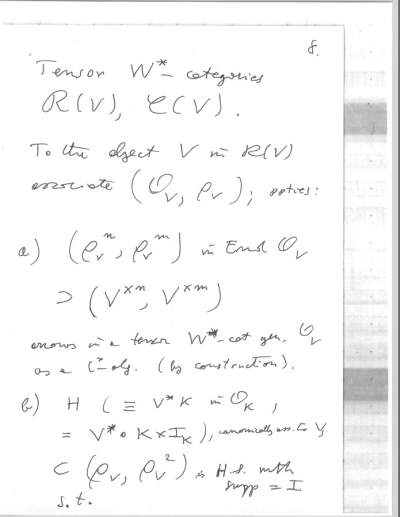 8.
Tensor W*- categories
R(V), C(V).
To the object V in R(V)
associate (O_V, ρ_V);
a) (ρ_V^n, ρ_V^m) in End O_V
⊃ (V^{×n}, V^{×m})
arrows in a tensor W*-cat gen. O_V
as a C*-alg. (by construction).
b) H (≡ V*K in O_K,
= V* ∘ K × I_K), canonically ass. to V,
⊂ (ρ_V, ρ_V^2) is H.s. with
supp = I
s.t.